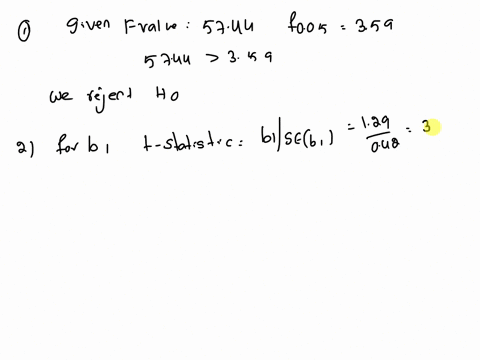 ① Given F value : 57.44 f0.05 = 3.59
57.44 > 3.59
we reject H0
2) for b1 t-statistic = b1/SE(b1) = 1.29/0.48 = 3